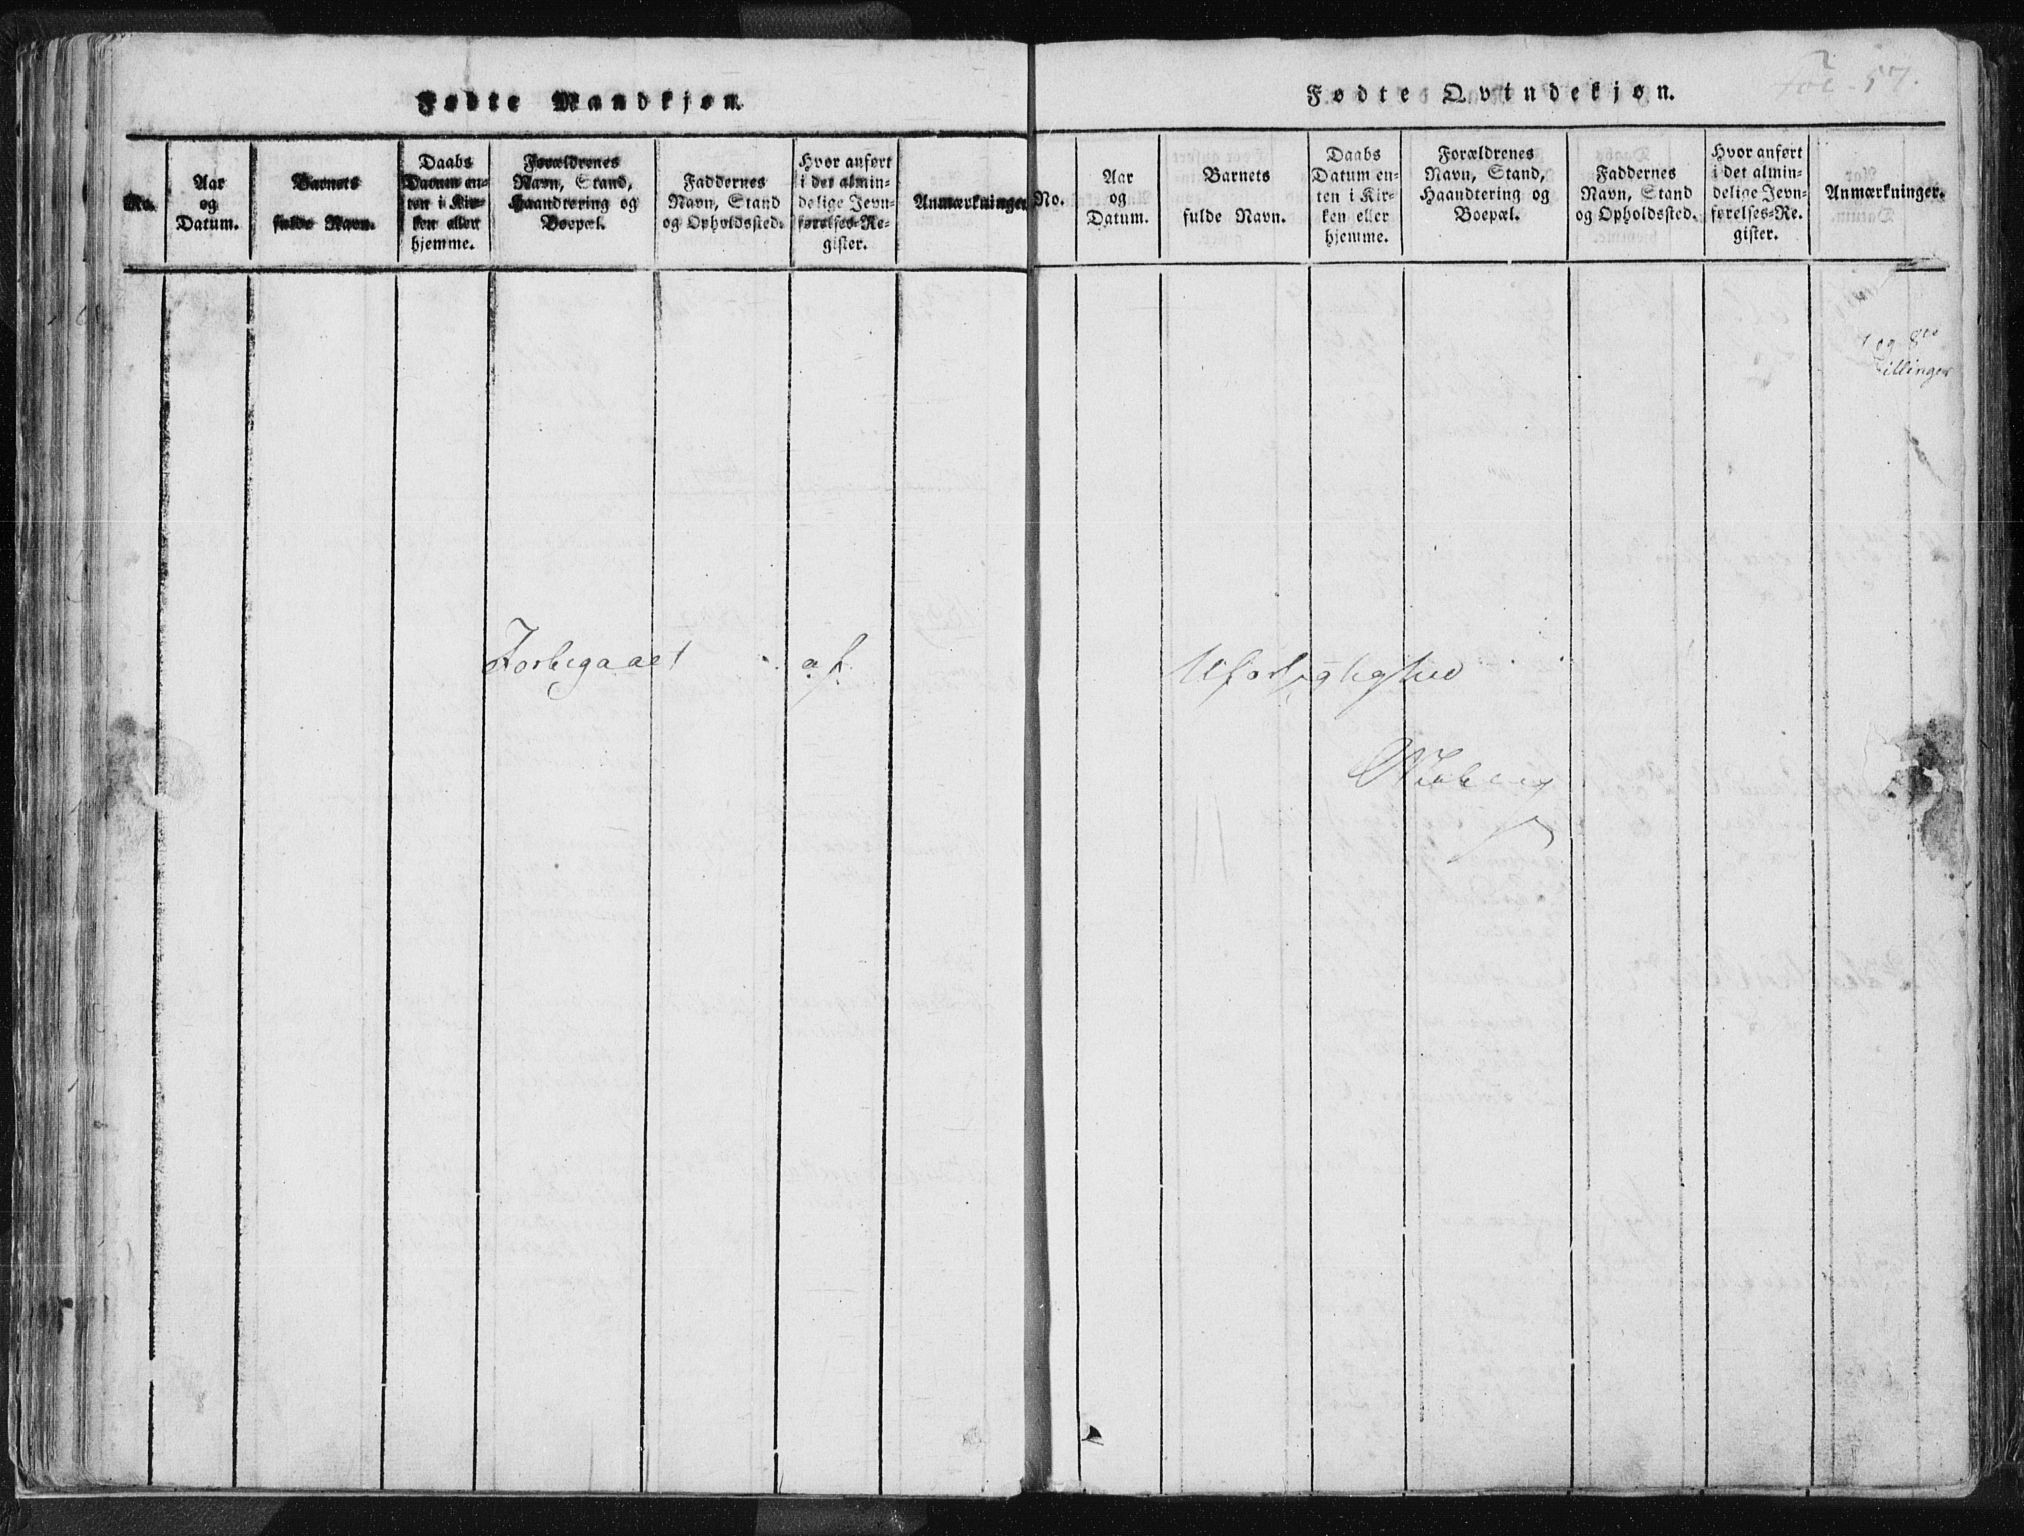 Fødte Mandkjøn.
No.
Aar
og
Datum.
Barnets
fulde Navn.
Daabs
Datum en-
ten i Kir-
ken eller
hjemme.
Forældrenes
Navn, Stand,
Haandtering og
Boepæl.
Faddernes
Navn, Stand
og Opholdssted.
Hvor anført
i det almin-
delige Jevn-
førelses-Re-
gister.
Anmærkninger
Forbigaaet af
Fødte Qvindekjøn.
Fol. 57.
No.
Aar
og
Datum.
Barnets
fulde Navn.
Daabs
Datum en-
ten i Kir-
ken eller
hjemme.
Forældrenes
Navn, Stand,
Haandtering og
Boepæl.
Faddernes
Navn, Stand
og Opholdssted.
Hvor anført
i det almin-
delige Jevn-
førelses-Re-
gister.
Anmærkninger.
7 og 8de
Tvillinger
Uforsigtighed